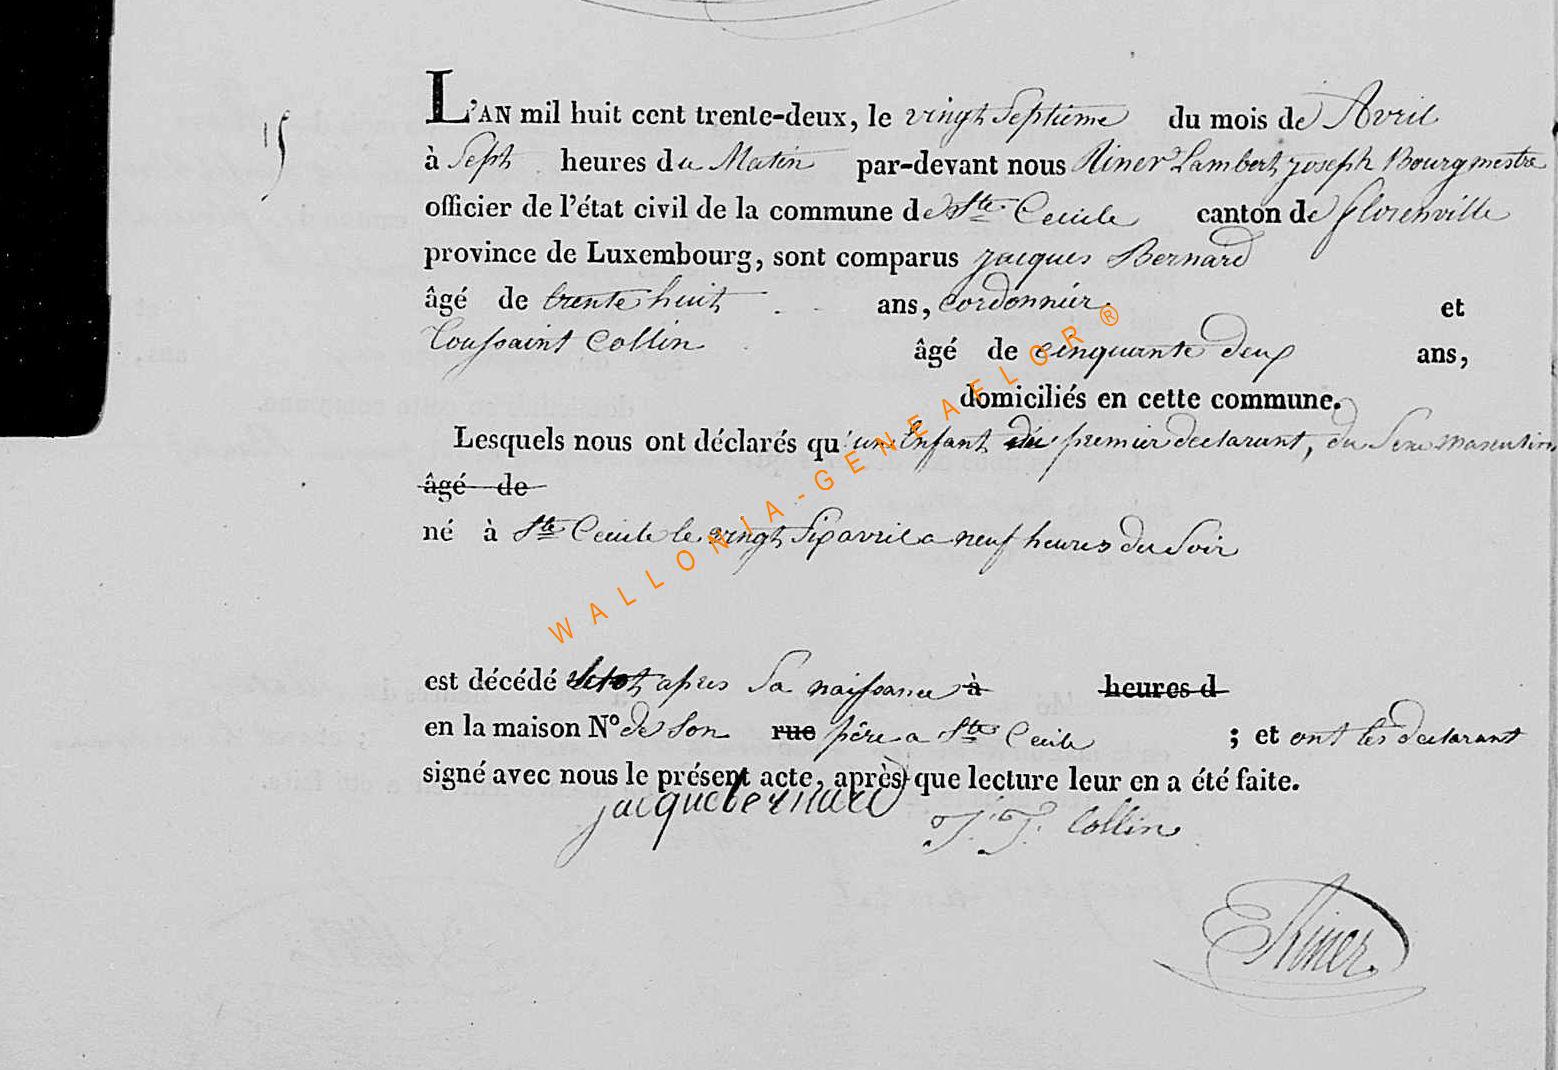 15
L'AN mil huit cent trente-deux, le vingt Septieme du mois de Avril
à Sept heures du Matin par-devant nous Riner Lambert joseph Bourgmestre
officier de l'état civil de la commune de Ste Cecile canton de florenville
province de Luxembourg, sont comparus jacques Bernard
âgé de trente huit ans, cordonnier et
Toussaint Collin âgé de cinquante deux ans,
domiciliés en cette commune.
Lesquels nous ont déclarés qu'un Enfant du premier declarant, du Sexe masculin
âgé de
né à Ste Cecile le vingt Six avril a neuf heures du Soir
est décédé apres Sa naissance à heures d
en la maison N° de Son rue père a Ste Cecile ; et ont les declarant
signé avec nous le présent acte, après que lecture leur en a été faite.
jacque bernard T. J. Collin
Riner
WALLONIA-GENEAFLOR®